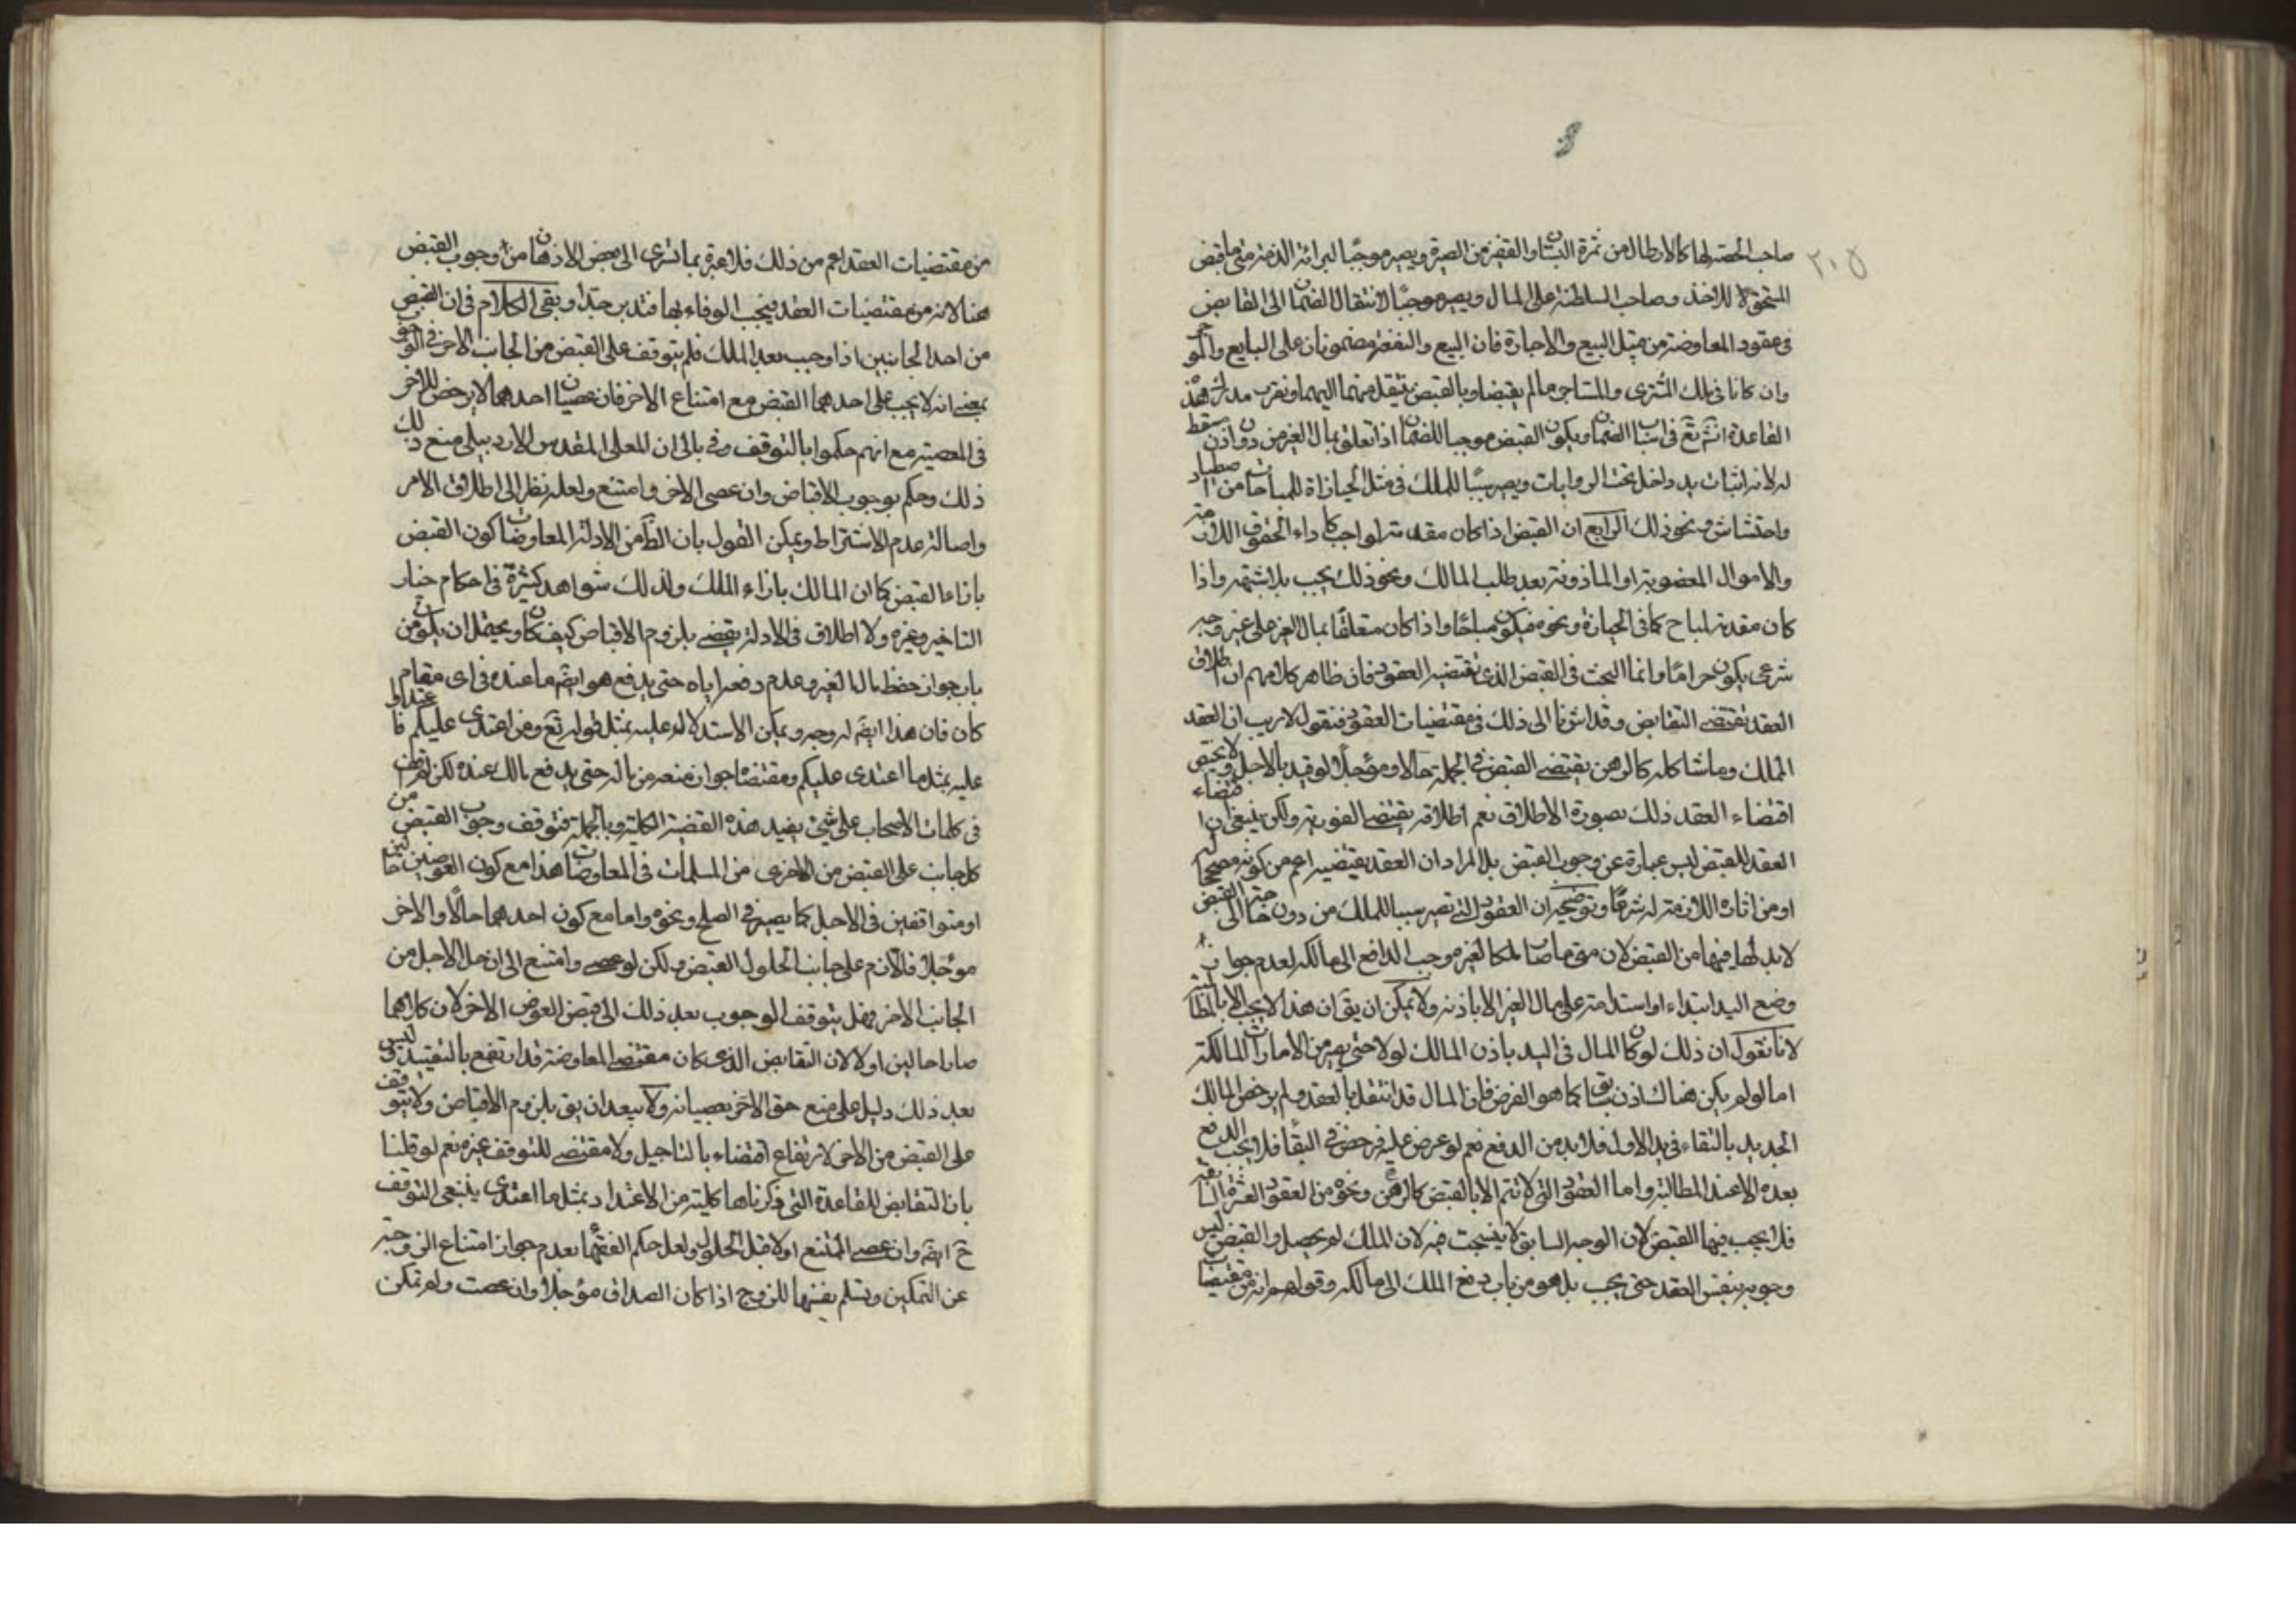 ٢٠٥
صاحب الحصة لها كالارطال من ثمرة البستان او القفيز من الصبرة ويصير موجبا لبرائة الذمة متى ما قبض
المستحق للاخذ وصاحب السلطنة على المال ويصير موجبا لانتقال الضمان الى القابض
فى عقود المعاوضة من مثل البيع والاجارة فان المبيع والمنفعة مضمونان على البايع والموجر
وان كانا فى ملك المشترى والمستاجر ما لم يقبضا وبالقبض ينتقل منهما اليهما ونقرب مدرك هذه
القاعدة انش تع فى اسباب الضمان ويكون القبض موجبا للضمان اذا تعلق بمال الغير من دون اذن مسقط
له لانه اثبات يد داخل تحت الروايات ويصير سببا للملك فى مثل الحيازة للمباحات من اصطياد
واحتشاش ونحو ذلك الرابع ان القبض اذا كان مقدمة لواجب كاداء الحقوق اللازمة
والاموال المغصوبة او الماذونة بعد طلب المالك ونحو ذلك يجب بلا شبهة واذا
كان مقدمة لمباح كما فى الحيازة ونحوه فيكون مباحا واذا كان متعلقا بمال الغير على غير وجه
شرعى يكون حراما وانما البحث فى القبض الذى تقتضيه العقود فان ظاهر كلامهم ان اطلاق
العقد يقتضى التقابض وقد اشرنا الى ذلك فى مقتضيات العقود فنقول لا ريب ان العقد
المملك وما شاكله كالرهن يقتضى القبض فى الجملة حالا او مؤجلا لو قيد بالاجل ولا يختص
اقتضاء العقد ذلك بصورة الاطلاق نعم اطلاقه يقتضى الفورية ولكن ينبغى ان اقتضاء
العقد للقبض ليس عبارة عن وجوب القبض بل المراد ان العقد يقتضيه اعم من كونه مصححا له
او من اثاره اللازمة له شرعا وتوضيحه ان العقود التى تصير سببا للملك من دون حاجة الى القبض
لابد لها فيها من القبض لان متى ما صار ملكا لغير موجب الدافع الى مالكه لعدم جواز
وضع اليد ابتداء او استدامة على مال الغير الا باذنه ولا يمكن ان يق ان هذا لا يجب الا بالمطالبة
لانا نقول ان ذلك لو كان المال فى اليد باذن المالك لولاه حتى يصير من الامارات المالكية
اما لو لم يكن هناك اذن سابق كما هو الفرض فان المال قد انتقل بالعقد ولم يرخص المالك
الجديد بالبقاء فى يد الاول فلابد من الدفع نعم لو عرض عليه فرخص فى البقاء فلا يجب الدفع
بعده الا عند المطالبة واما العقود التى لا تتم الا بالقبض كالرهن ونحوه من العقود العشرة السابقة
فلا يجب فيها القبض لان الوجه السابق لا ينسحب فيه لان الملك لم يحصل والقبض ليس
وجوبه بنفس العقد حتى يجب بل هو من باب دفع الملك الى مالكه وقولهم انه من مقتضيات
من مقتضيات العقد اعم من ذلك فلا عبرة بما تسرى الى بعض الاذهان من وجوب القبض
هنا لانه من مقتضيات العقد فيجب الوفاء بها فتدبر جدا وبقى الكلام فى ان القبض
من احد الجانبين اذا وجب بعد الملك فلم يتوقف على القبض من الجانب الاخر فى الوجوب
بمعنى انه لا يجب على احدهما القبض مع امتناع الاخر فان عصيان احدهما لا يرخص للاخر
فى المعصية مع انهم حكموا بالتوقف وفى بالى ان للمعلى المقدس الاردبيلى منع ذلك
ذلك وحكم بوجوب الاقباض وان عصى الاخر وامتنع ولعله نظر الى اطلاق الامر
واصالة عدم الاشتراط ويمكن القول بان الظ من الادلة المعاوضات كون القبض
بازاء القبض كما ان المالك بازاء الملك ولذلك شواهد كثيرة فى احكام خيار
التاخير وغيره ولا اطلاق فى الادلة يقتضى بلزوم الاقباض كيف كان ويحتمل ان يكون من
باب جواز حفظ مال الغير وعدم دفعه اياه حتى يدفع هو ايضا ما عنده فى اى مقام
كان فان هذا ايضا له وجه ويمكن الاستدلال عليه بمثل قوله تع ومن اعتدى عليكم فاعتدوا
عليه بمثل ما اعتدى عليكم ومقتضاه جواز منعه من ماله حتى يدفع مالك عنده لكن لم نقف
فى كلمات الاصحاب على شئ يفيد هذه القضية الكلية وبالجملة فتوقف وجوب القبض من
كل جانب على القبض من الاخرى من المسلمات فى المعاوضات هذا مع كون العوضين حالين
او متوافقين فى الاجل كما يصير فى الصلح ونحوه واما مع كون احدهما حالا والاخر
مؤجلا فلازم على جانب الحلول القبض ولكن لو عصى وامتنع الى ان حل الاجل من
الجانب الاخر فهل يتوقف الوجوب بعد ذلك الى قبض العوض الاخر لان كلاهما
صارا حالين اولا لان التقابض الذى كان مقتضى المعاوضة قد ارتفع بالتقييد وليس
بعد ذلك دليل على منع حق الاخر بعصيانه ولا يبعد ان يق بلزوم الاقباض ولا يتوقف
على القبض من الاخر لارتفاع اقتضاء بالتاجيل ولا مقتضى للتوقف غيره نعم لو قلنا
بان التقابض للقاعدة التى ذكرناها كلية من الاعتداد بمثل ما اعتدى ينبغى التوقف
ح ايضا وان عصى الممتنع اولا قبل الحلول ولعل حكم الفقهاء بعدم جواز امتناع الزوجة
عن التمكين وتسلم نفسها للزوج اذا كان الصداق مؤجلا وان عصت ولم تمكن